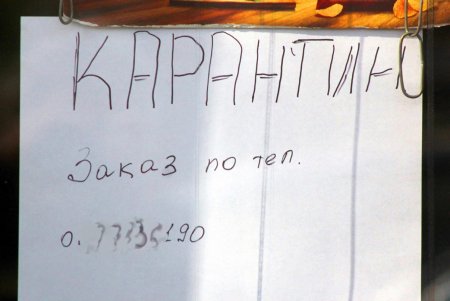 КАРАНТИНО
Заказ по тел.
0. 190